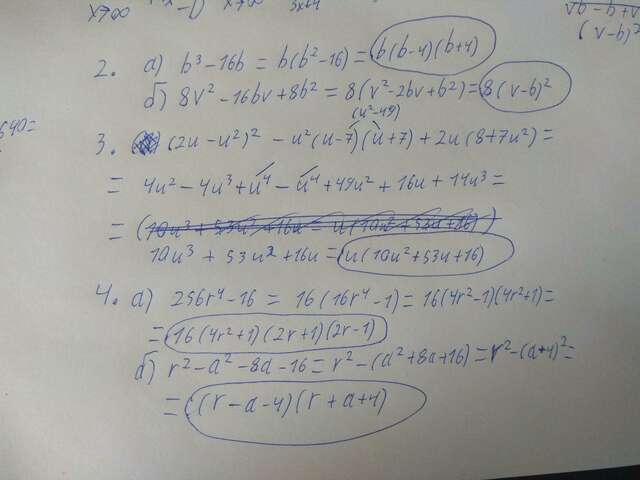 2. а) b³ - 16b = b(b² - 16) = b(b-4)(b+4)
б) 8v² - 16bv + 8b² = 8(v² - 2bv + b²) = 8(v-b)²
(u²-49)
3. (2u - u²)² - u²(u-7)(u+7) + 2u(8+7u²) =
= 4u² - 4u³ + u⁴ - u⁴ + 49u² + 16u + 14u³ =
= (10u³ + 53u² + 16u = u(10u² + 53u + 16))
10u³ + 53u² + 16u = u(10u² + 53u + 16)
4. а) 256r⁴ - 16 = 16(16r⁴ - 1) = 16(4r²-1)(4r²+1) =
= 16(4r²+1)(2r+1)(2r-1)
б) r² - a² - 8a - 16 = r² - (a² + 8a + 16) = r² - (a+4)² =
= ((r-a-4)(r+a+4)